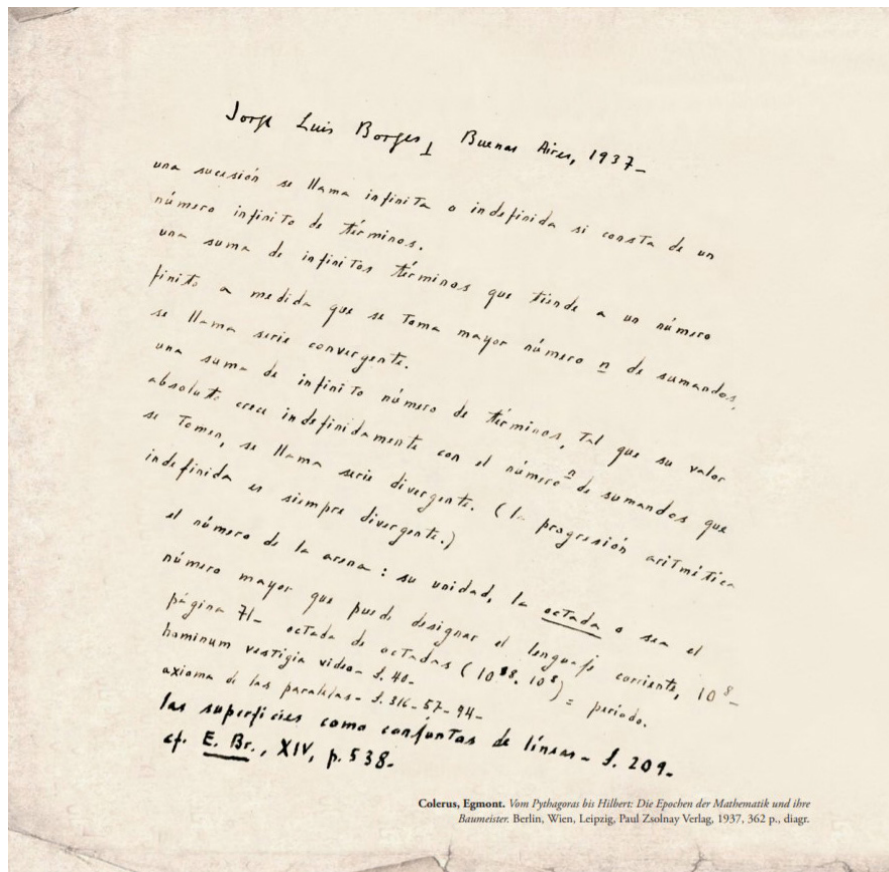 Jorge Luis Borges, Buenos Aires, 1937–
una sucesión se llama infinita o indefinida si consta de un
número infinito de términos.
una suma de infinitos términos que tiende a un número
finito a medida que se toma mayor número n de sumandos,
se llama serie convergente.
una suma de infinito número de términos, tal que su valor
absoluto crece indefinidamente con el número n de sumandos que
se tomen, se llama serie divergente. (la progresión aritmética
indefinida es siempre divergente.)
el número de la arena: su unidad, la octada o sea el
número mayor que puede designar el lenguaje corriente, 10⁸–
página 71– octada de octadas (10⁸·10⁸) = periodo.
hominum vestigia video– S. 40–
axioma de las paralelas– S. 316– 57– 94–
las superficies como conjuntos de líneas– S. 209–
cf. E. Br., XIV, p. 538–
Colerus, Egmont. Vom Pythagoras bis Hilbert: Die Epochen der Mathematik und ihre
Baumeister. Berlin, Wien, Leipzig, Paul Zsolnay Verlag, 1937, 362 p., diagr.